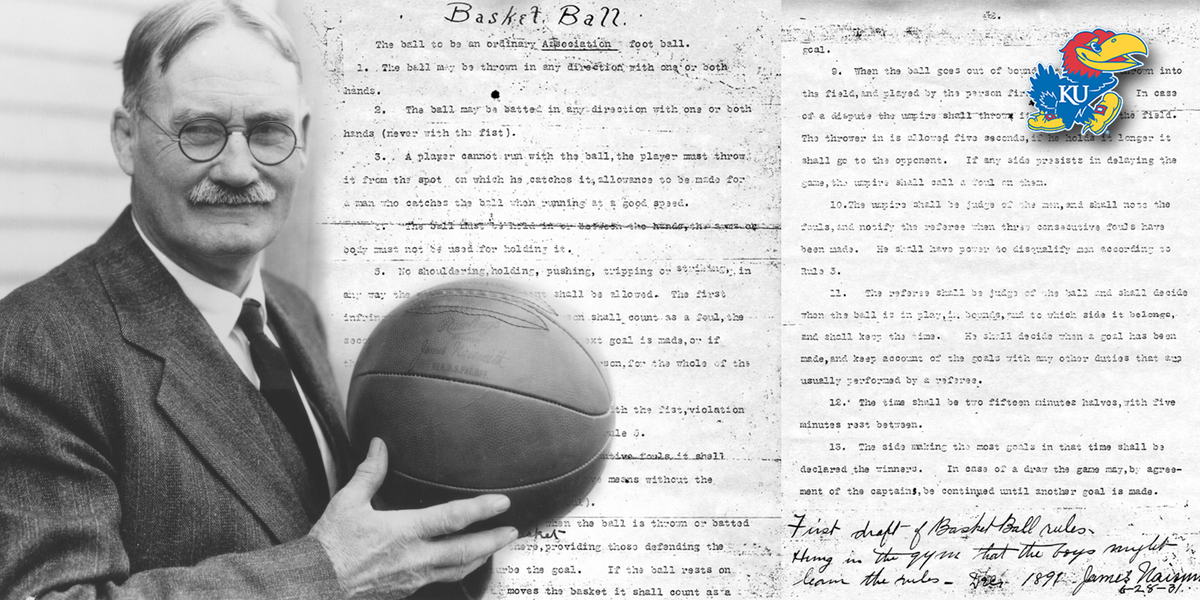 Basket Ball.
The ball to be an ordinary Association foot ball.
1. The ball may be thrown in any direction with one or both
hands.
2. The ball may be batted in any direction with one or both
hands (never with the fist).
3. A player cannot run with the ball, the player must throw
it from the spot on which he catches it, allowance to be made for
a man who catches the ball when running at a good speed.
The ball must be held in or between the hands, the arms or
body must not be used for holding it.
5. No shouldering, holding, pushing, tripping or striking, in
any way the shall be allowed. The first
shall count as a foul, the
goal is made, or if
for the whole of the
the fist, violation
5.
fouls, it shall
means without the
when the ball is thrown or batted
providing those defending the
the goal. If the ball rests on
moves the basket it shall count as a
goal.
9. When the ball goes out of into
the field, and played by the person In case
of a dispute the umpire shall throw the field.
The thrower in is allowed five seconds, if he holds it longer it
shall go to the opponent. If any side presists in delaying the
game, the umpire shall call a foul on them.
10. The umpire shall be judge of the men, and shall note the
fouls, and notify the referee when three consecutive fouls have
been made. He shall have power to disqualify men according to
Rule 5.
11. The referee shall be judge of the ball and shall decide
when the ball is in play, in bounds, and to which side it belongs,
and shall keep the time. He shall decide when a goal has been
made, and keep account of the goals with any other duties that are
usually performed by a referee.
12. The time shall be two fifteen minutes halves, with five
minutes rest between.
13. The side making the most goals in that time shall be
declared the winners. In case of a draw the game may, by agree-
ment of the captains, be continued until another goal is made.
First draft of Basket Ball rules.
Hung in the gym that the boys might
learn the rules - Dec. 1891 James
6-28-31.
KU